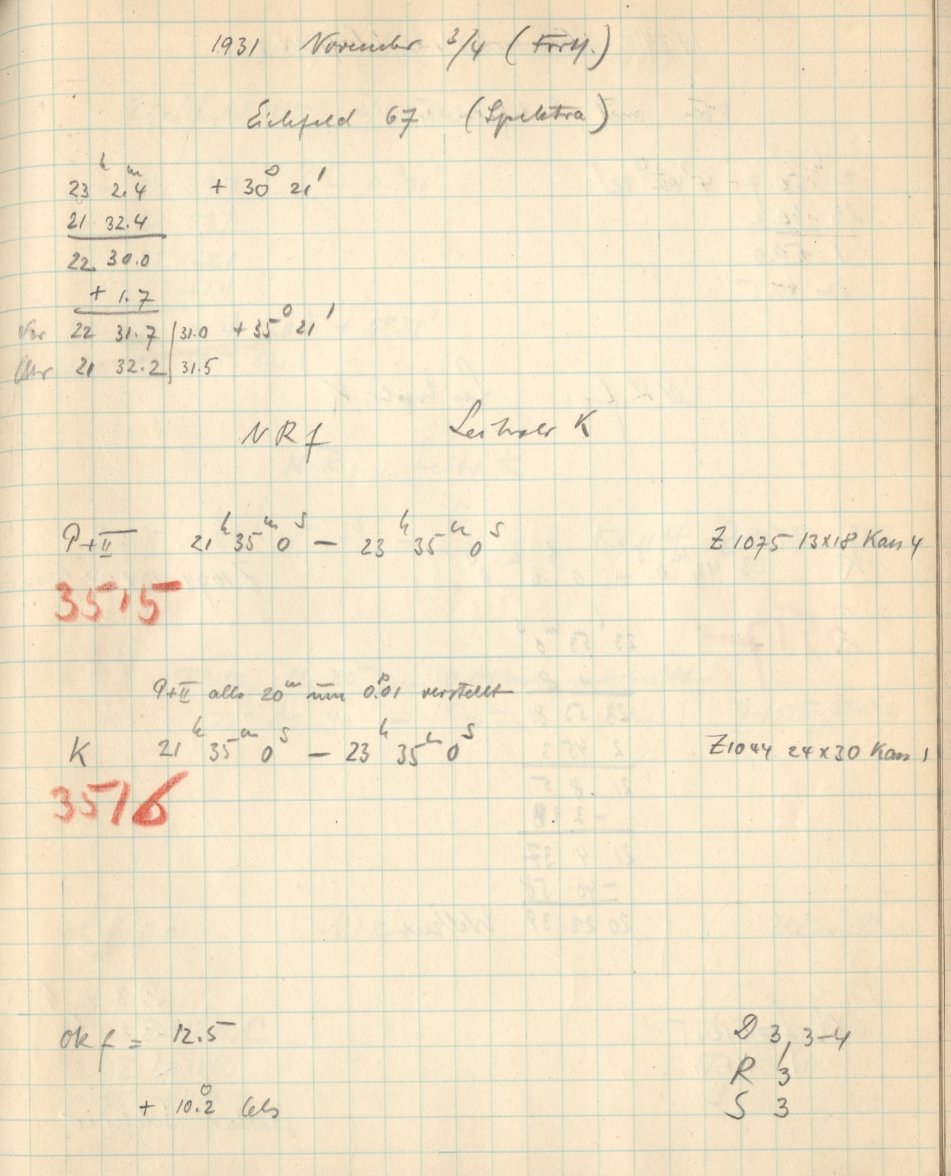 1931 November 3/4 (Forts.)
Eichfeld 67 (Spektra)
23ʰ 2.4ᵐ + 30° 21'
21 32.4
22 30.0
+ 1.7
22 31.7 | 31.0 + 35° 21'
Uhr 21 32.2 | 31.5
N R f K
P+II 21ʰ 35ᵐ 0ˢ — 23ʰ 35ᵐ 0ˢ Z 1075 13x18 Kass 4
3515
P+II alle 20ᵐ um 0.01 verstellt
K 21ʰ 35ᵐ 0ˢ — 23ʰ 35ᵐ 0ˢ Z1044 24x30 Kass 1
3516
Okf = 12.5 D 3, 3-4
R 3
+ 10.2° Cels S 3